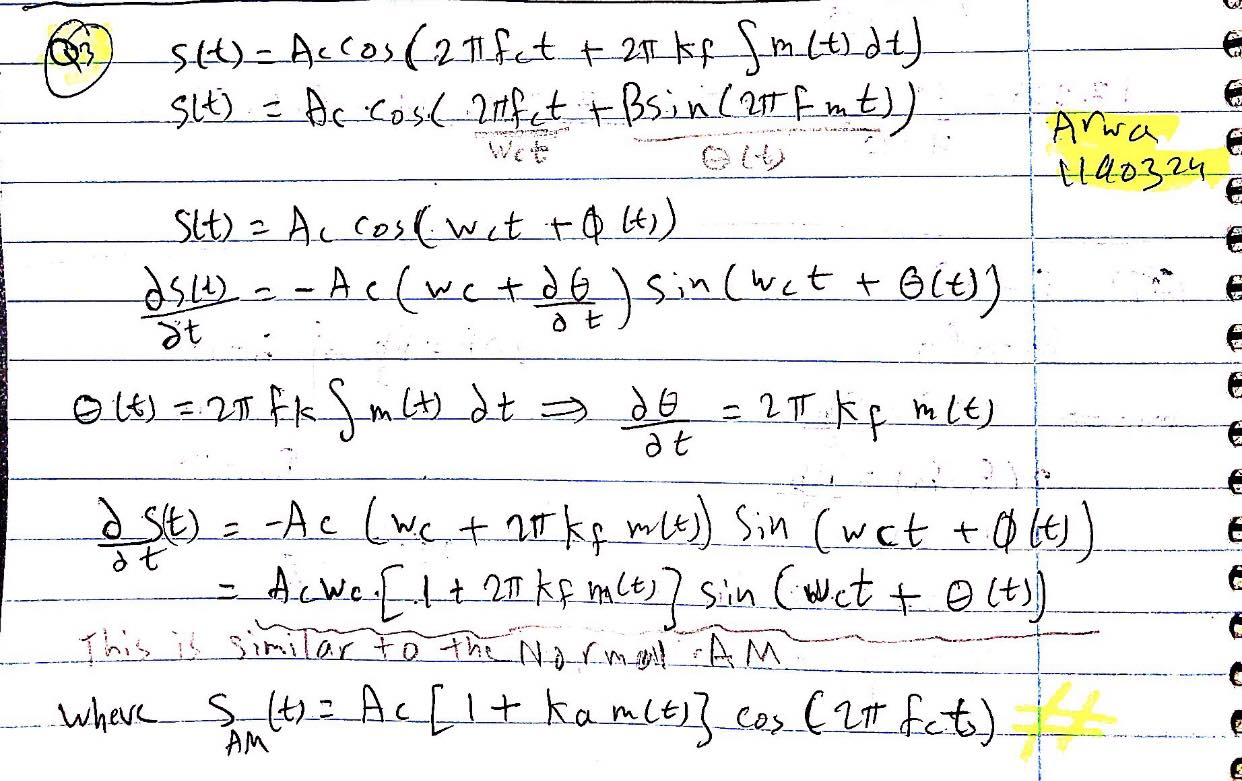 Q3 s(t) = Ac cos(2πfct + 2π kf ∫m(t) dt)
s(t) = Ac cos( 2πfct + βsin(2π Fmt))
wct θ(t)
Arwa
1190324
s(t) = Ac cos( wct + φ(t))
∂s(t)/∂t = - Ac (wc + ∂θ/∂t) sin(wct + θ(t))
θ(t) = 2π fk ∫m(t) dt ⇒ ∂θ/∂t = 2π kf m(t)
∂S(t)/∂t = -Ac (wc + 2π kf m(t)) Sin (wct + φ(t))
= Ac wc [1 + 2π kf m(t)] sin (wct + θ(t))
This is similar to the Normal AM
where S AM (t) = Ac [1 + ka m(t)} cos (2π fcts)